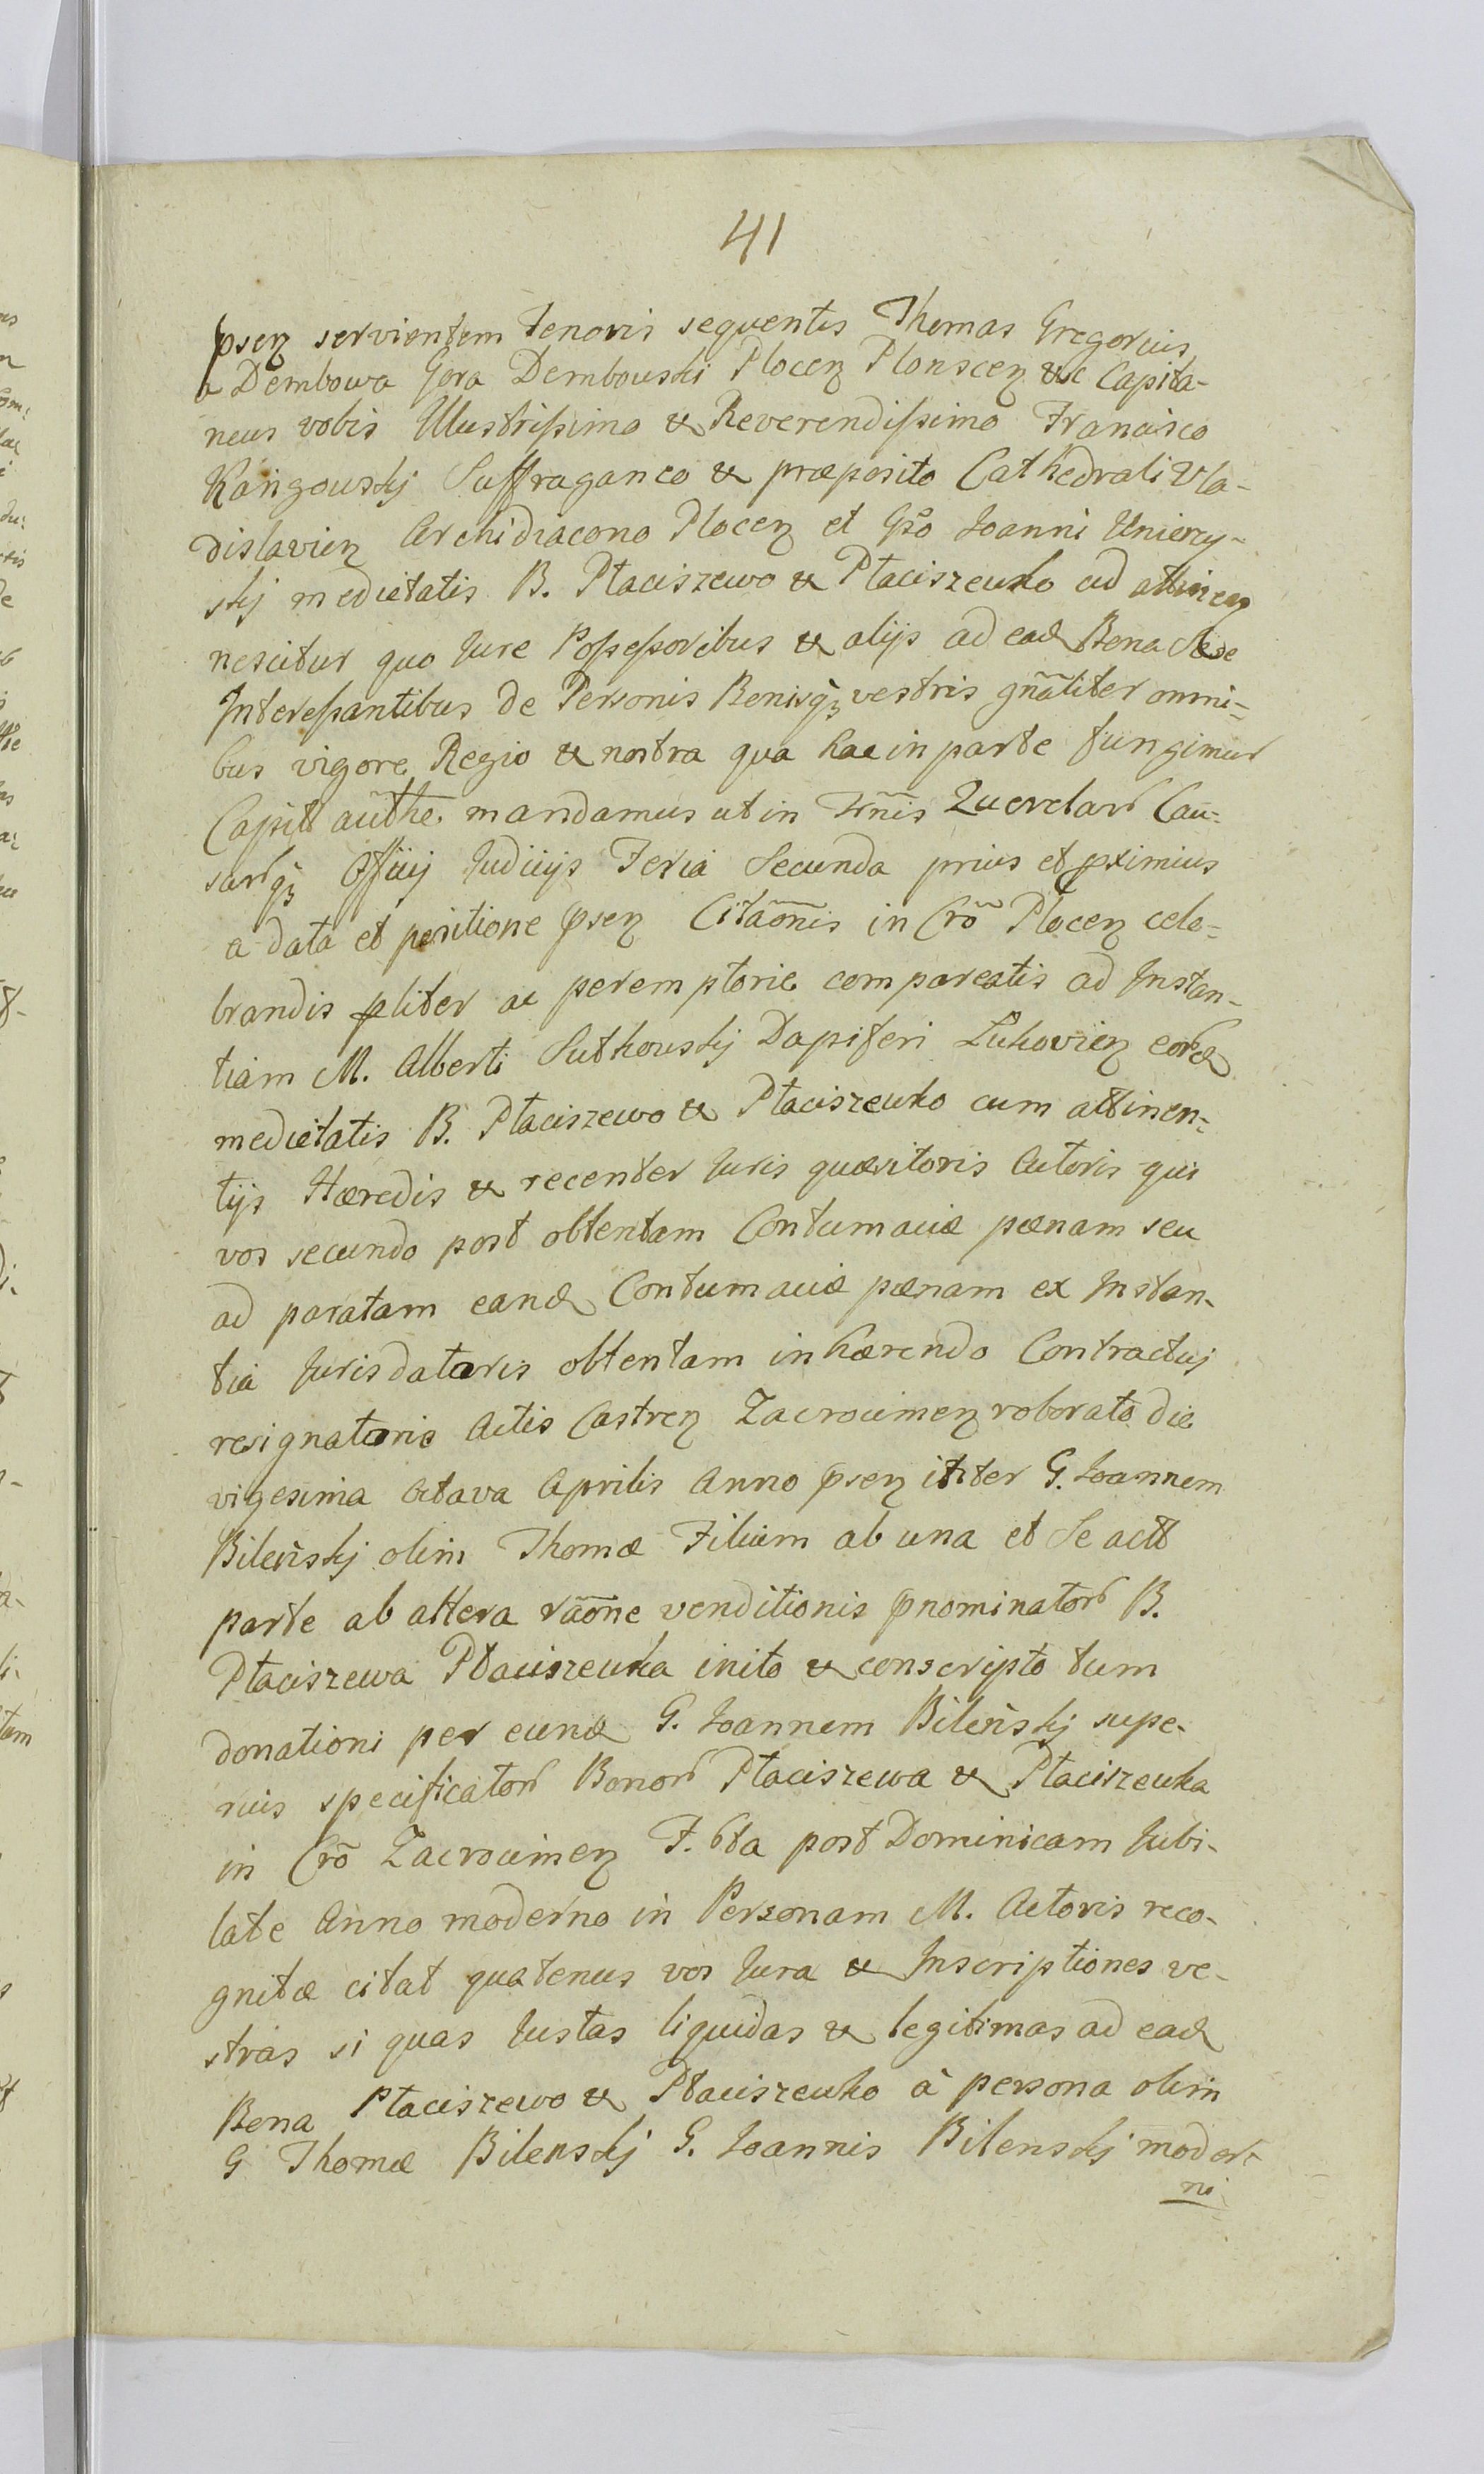 41
psen servientem Tenoris sequentis Thomas Gregorius
a Dembowa Gora Dembowski Plocen Plonscen &c Capita-
neus vobis Illustrissimo & Reverendissimo Francisco
Kangowskj Suffraganeo & præposito Cathedrali Vla-
dislavien Archidiacono Plocen et Gso Joanni Uniery-
skj medietatis B. Ptaciszewo & Ptaciszewko ad attinen
nescitur quo Jure Possessoribus & alijs ad ead Bona Sese
Interessantibus de Personis Bonisq vestris gnãliter omni-
bus vigore Regio & nostra qua hac in parte fungimur
Capitt aũthe. mandamus ut in Trñis Querelar Cau-
sarq Officij Judicijs Feria Secunda prius et pximius
a data et positione psen Citãonis in Crõ Plocen cele-
brandis pliter ac peremptorie compareatis ad Instan-
tiam M. Alberti Sutkowskj Dapiferi Lukovien eord
medietatis B. Ptaciszewo & Ptaciszewko cum attinen-
tijs Hæredis & recenter Juris quæsitoris Actoris qui
vos secundo post obtentam Contumaciæ pænam seu
ad paratam eand Contumaciæ pænam ex Instan-
tia Jurisdatoris obtentam inhærendo Contractuj
resignatorio Actis Castren Zacrocimen roborato die
vigesima Octava Aprilis Anno psen inter G. Joannem
Bileńskj olim Thomæ Filium ab una et Se actt
parte ab altera rãone venditionis pnominator B.
Ptaciszewa Ptaciszewka inito & conscripto tum
donationi per eund G. Joannem Bileńskj supe-
rius specificator Bonor Ptaciszewa & Ptaciszewka
in Crõ Zacrocimen F. 6ta post Dominicam Jubi-
late Anno moderno in Personam M. Actoris reco-
gnitæ citat quatenus vos Jura & Inscriptiones ve-
stras si quas Justas liquidas & legitimas ad ead
Bona Ptaciszewo & Ptaciszewko à persona olim
G Thomæ Bilenskj G. Joannis Bilenskj moder-
ni